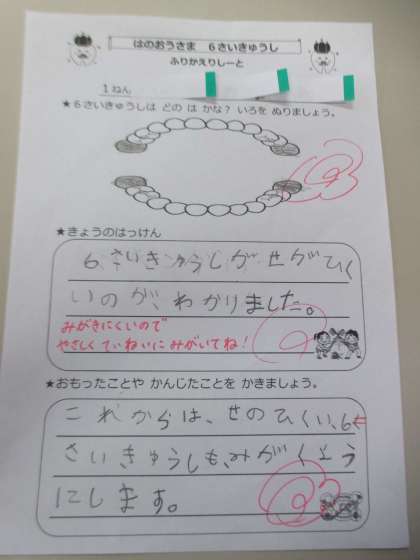 はのおうさま　６さいきゅうし
ふりかえりしーと
１ねん
★６さいきゅうしは どの は かな？ いろを ぬりましょう。
★きょうのはっけん
６さいきゅうしが、せがひく
いのが、わかりました。
みがきにくいので
やさしく ていねいに みがいてね！
★おもったことや かんじたことを かきましょう。
これからは、せのひくい、６
さいきゅうしも、みがくよう
にします。